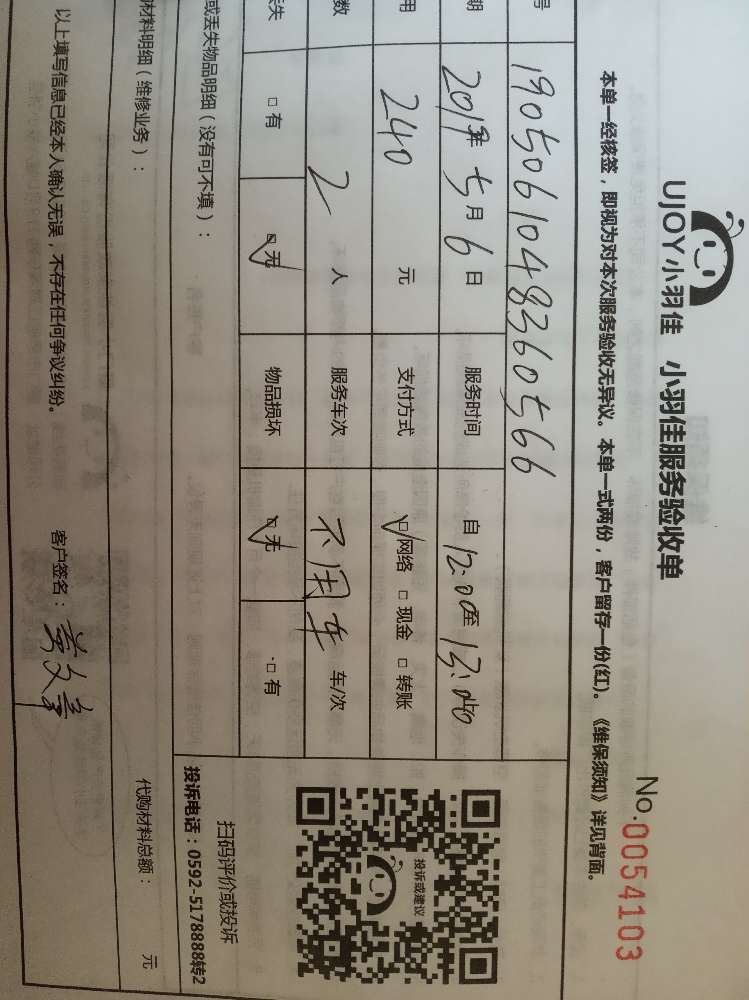 UJOY小羽佳 小羽佳服务验收单
No.0054103
本单一经核签，即视为对本次服务验收无异议。本单一式两份，客户留存一份(红)。《维保须知》详见背面。
号 190506104836056​6
期 2019年 5月 6日 服务时间 自 12:00至 13:00
用 240 元 支付方式 网络 现金 转账
数 2 人 服务车次 不用车 车/次
丢失 有 无 物品损坏 无 有
或丢失物品明细（没有可不填）：
投诉或建议
扫码评价或投诉
投诉电话：0592-5178888转2
材料明细（维修业务）： 代购材料总额： 元
以上填写信息已经本人确认无误，不存在任何争议纠纷。 客户签名：